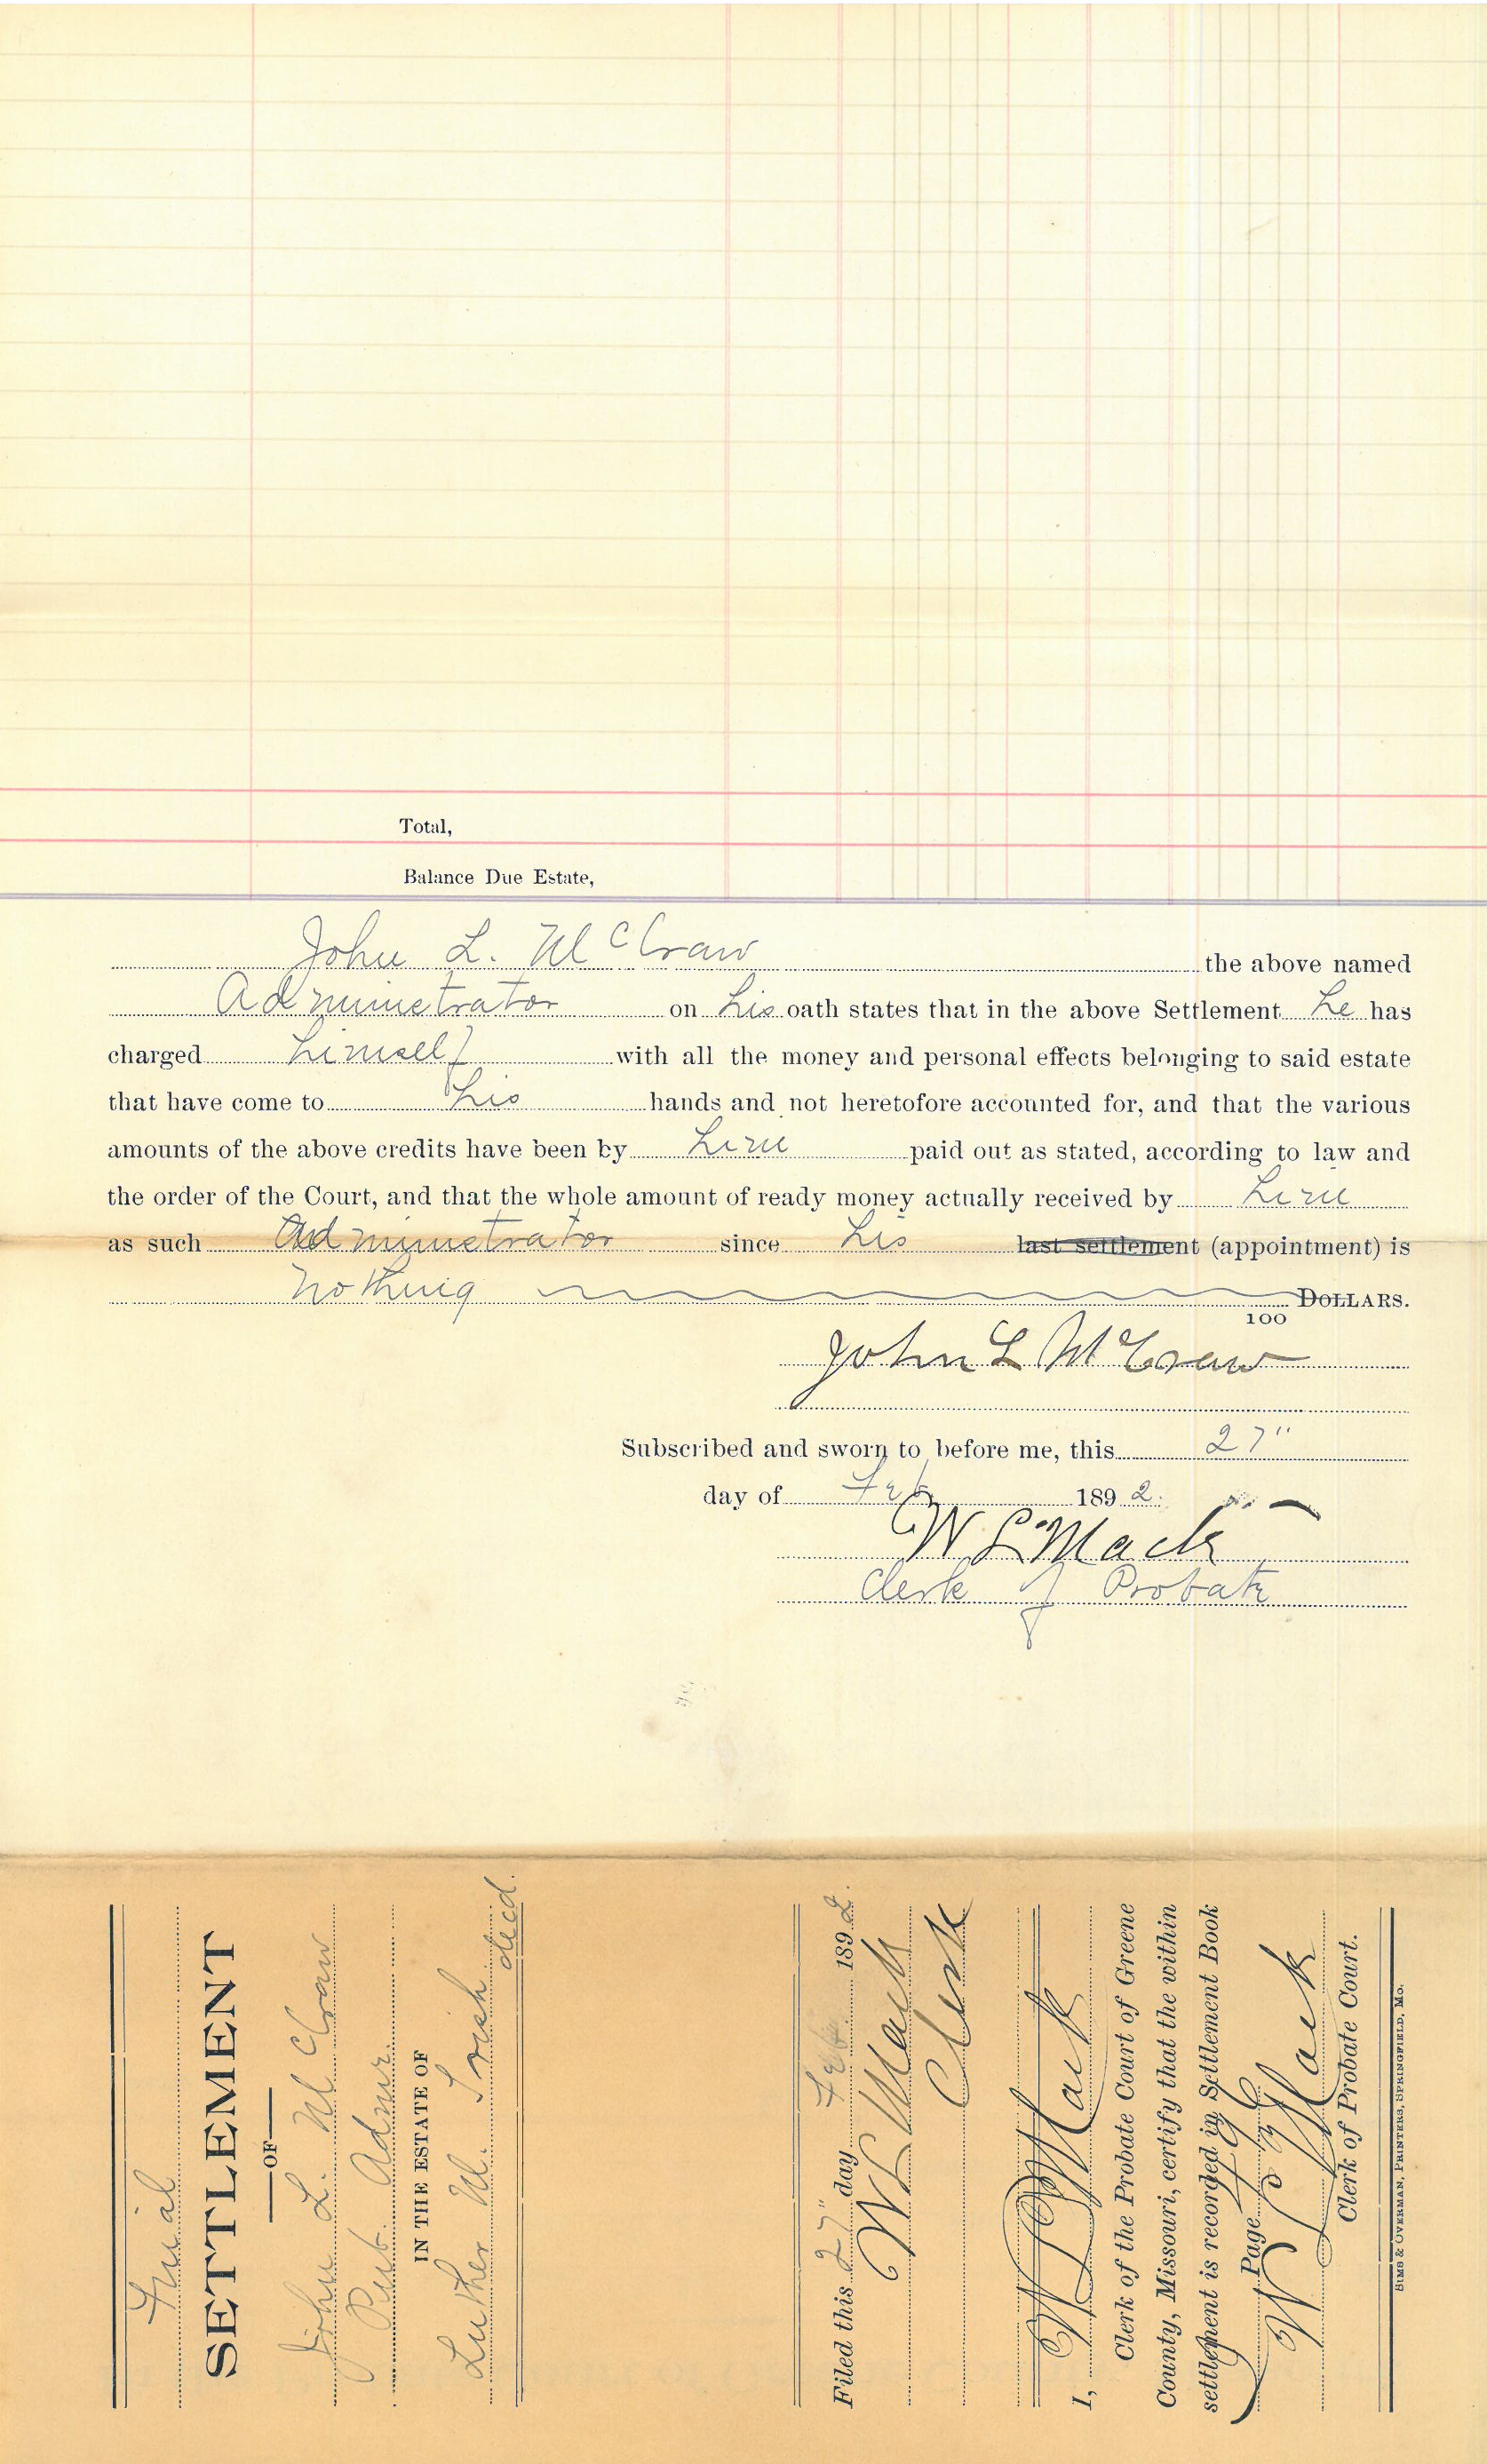 Total,
Balance Due Estate,
John L. McCraw the above named
Administrator on his oath states that in the above Settlement he has
charged himself with all the money and personal effects belonging to said estate
that have come to his hands and not heretofore accounted for, and that the various
amounts of the above credits have been by him paid out as stated, according to law and
the order of the Court, and that the whole amount of ready money actually received by him
as such Administrator since his last settlement (appointment) is
Nothing DOLLARS.
100
John L McCraw
Subscribed and sworn to before me, this 27"
day of Feb 1892.
W L Mack
Clerk of Probate
Final
SETTLEMENT
OF
John L. McCraw
Pub. Admr.
IN THE ESTATE OF
Luther M.
decd.
Filed this 27" day Feb. 1892.
W L Mack
Clerk
I, W L Mack
Clerk of the Probate Court of Greene
County, Missouri, certify that the within
settlement is recorded in Settlement Book
Page
W L Mack
Clerk of Probate Court.
SIMS & OVERMAN, PRINTERS, SPRINGFIELD, MO.